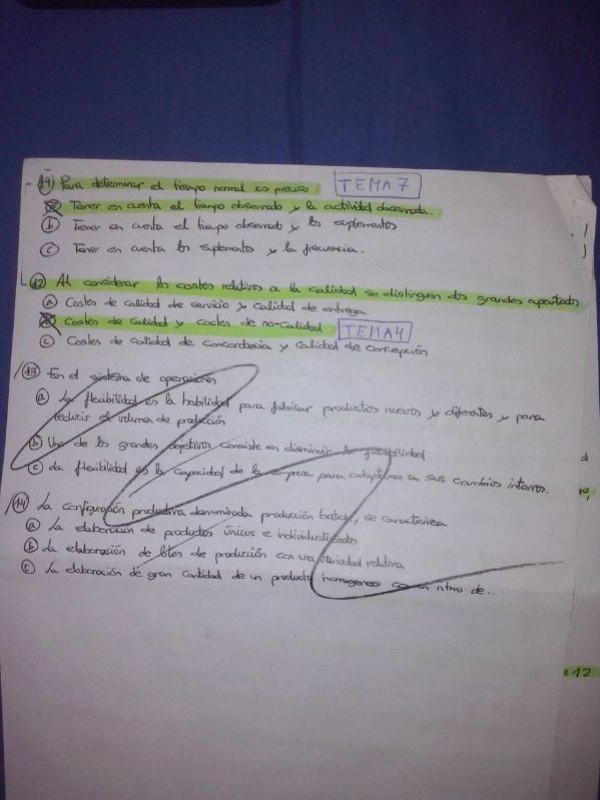 19) Para determinar el tiempo normal es preciso: TEMA 7
a) Tener en cuenta el tiempo observado y la actividad observada.
b) Tener en cuenta el tiempo observado y los suplementos
c) Tener en cuenta los suplemento y la frecuencia.
12) Al considerar los costes relativos a la calidad se distinguen dos grandes apartados
a) Costes de calidad de servicio y calidad de entrega
b) Costes de calidad y costes de no-calidad TEMA 4
c) Costes de calidad de concordancia y calidad de concepción
13) En el sistema de operaciones
a) La flexibilidad es la habilidad para fabricar productos nuevos y diferentes y para
reducir el volumen de producción
b) Uno de los grandes objetivos consiste en disminuir la flexibilidad
c) La flexibilidad es la capacidad de la empresa para adaptarse a sus cambios internos.
14) La configuración productiva denominada producción batch, se caracteriza
a) La elaboración de productos únicos e individualizados
b) La elaboración de lotes de producción con una variedad relativa
c) La elaboración de gran cantidad de un producto homogeneo con un ritmo de...
12